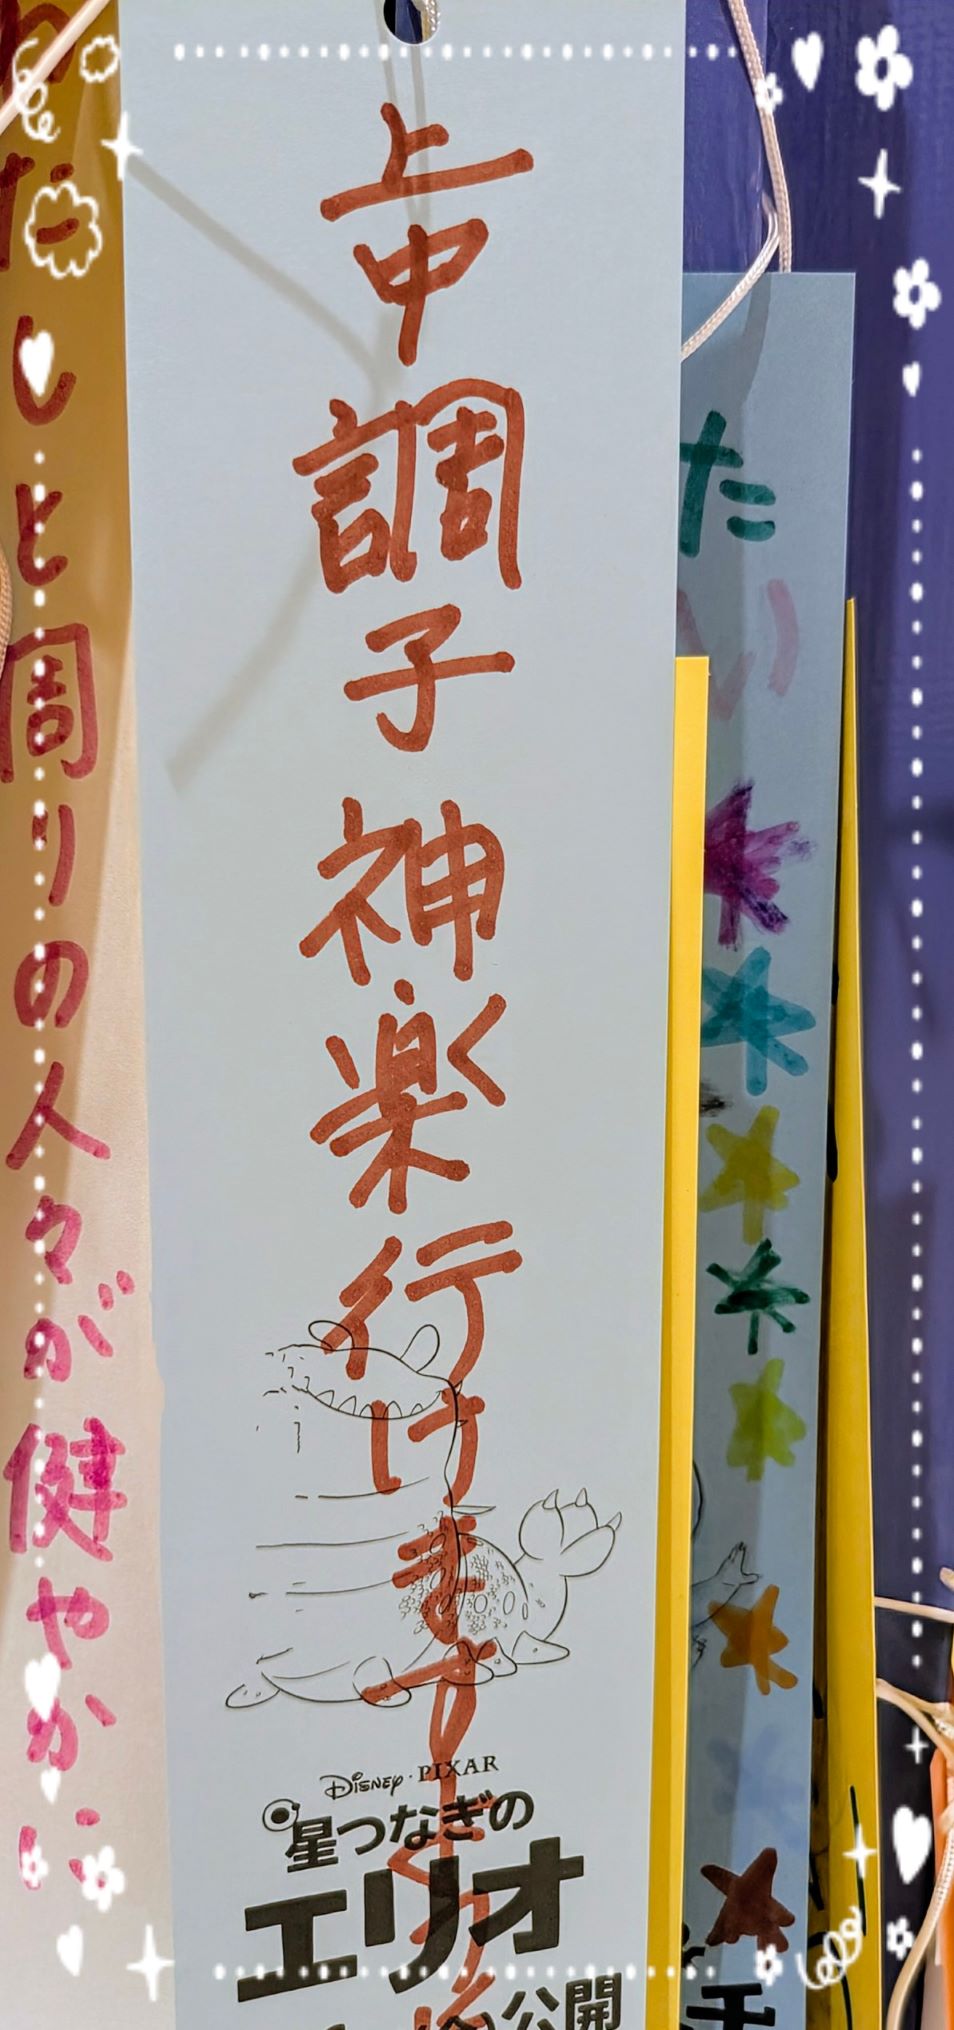 たい
上中調子 神楽行けますように
わたしと周りの人々が健やかに
Disney・PIXAR
星つなぎの
エリオ
公開
チ